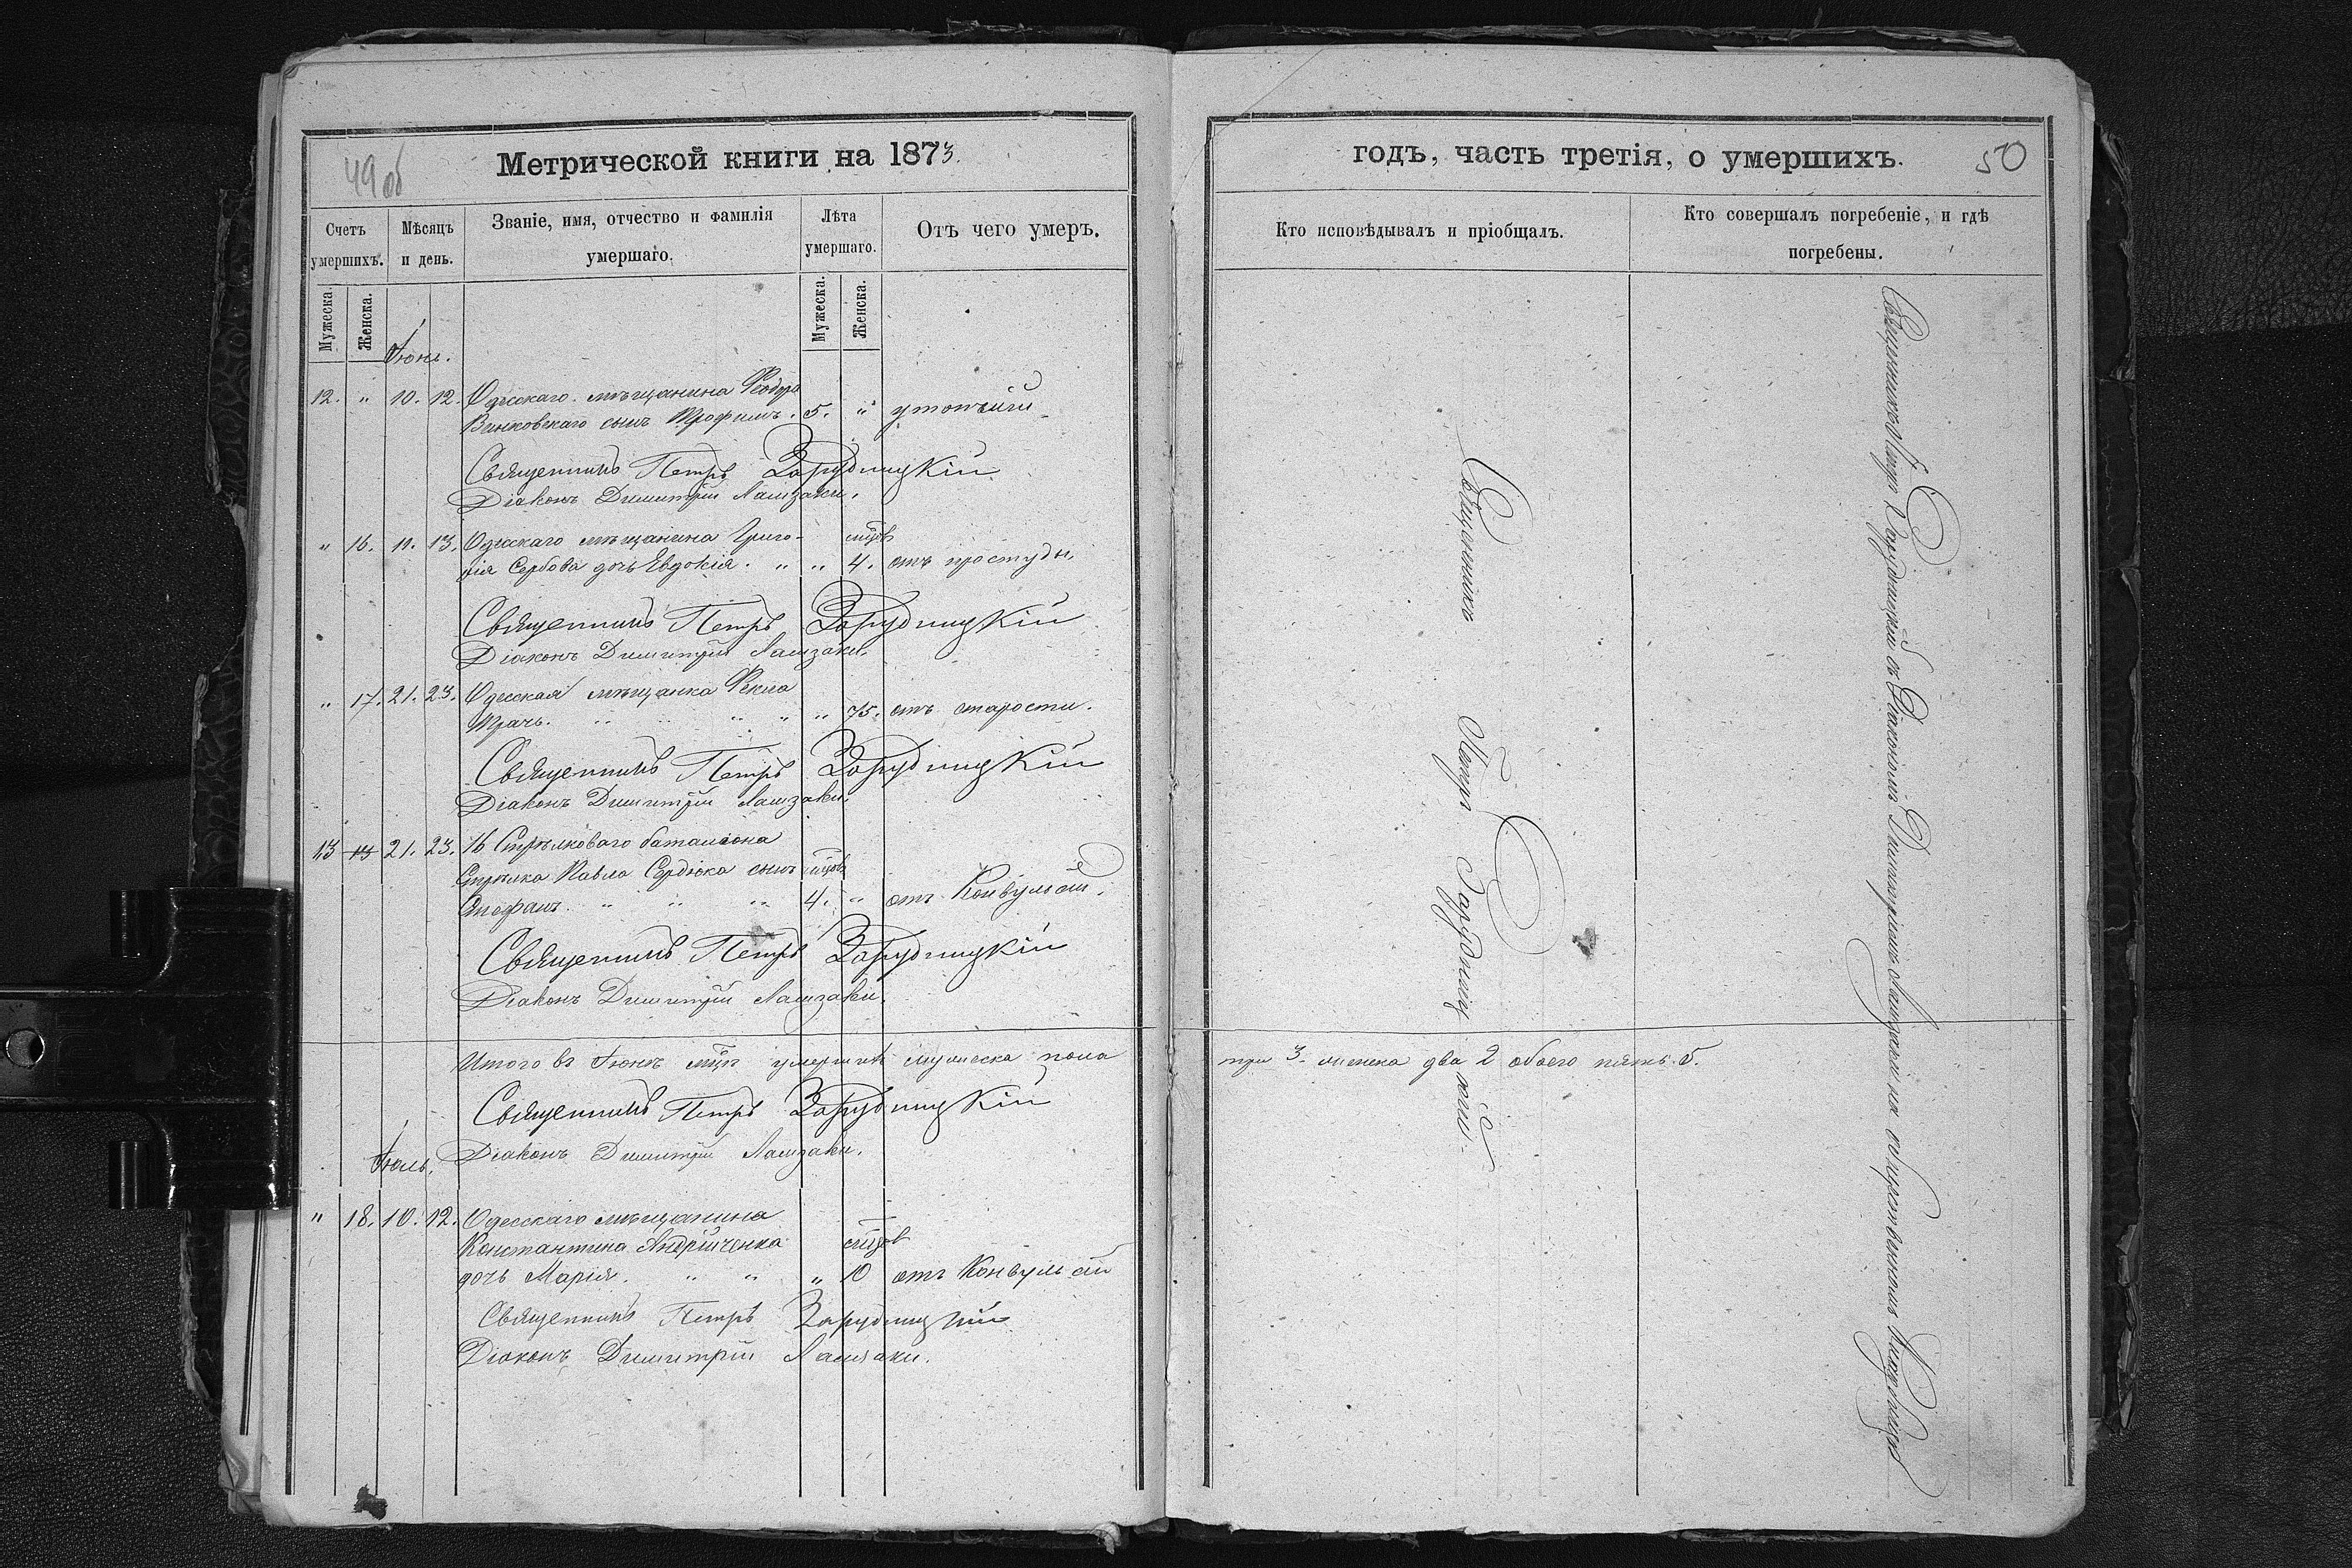 49 об
Метрической книги на 1873.
Счетъ умершихъ.
Мѣсяцъ и день.
Званіе, имя, отчество и фамилія умершаго.
Лѣта умершаго.
Отъ чего умеръ.
Мужеска.
Женска.
Мужеска.
Женска.
Іюнь.
12. " 10. 12. Одесскаго мѣщанина Ѳеодора
Винковскаго сынъ Трофимъ. 5. "
Священникъ Петръ Зарудницкій
Діаконъ Димитрій Ламзаки.
" 16. 11. 13. Одесскаго мѣщанина Григо- мцвъ
рія Сербова дочь Евдокія. " " 4. отъ простуды
Священникъ Петръ Зарудницкій
Діаконъ Димитрій Ламзаки.
" 17. 21. 23. Одесская мѣщанка Ѳекла
Ткачъ. " " " " " 75. отъ старости.
Священникъ Петръ Зарудницкій
Діаконъ Димитрій Ламзаки.
13 13 21. 23. 16 Стрѣлковаго баталіона
Стрѣлка Павла Сердюка сынъ мцовъ
Стефанъ. " " " 4. " отъ Конвульсій.
Священникъ Петръ Зарудницкій
Діаконъ Димитрій Ламзаки.
Итого въ Іюнѣ мцѣ умершихъ мужеска пола
Священникъ Петръ Зарудницкій
Діаконъ Димитрій Ламзаки.
Іюль.
" 18. 10. 12. Одесскаго мѣщанина
Константина Андрійченка мцовъ
дочь Марія. " " " 10 отъ Конвульсій
Священникъ Петръ Зарудницкій
Діаконъ Димитрій Ламзаки.
годъ, часть третія, о умершихъ.
50
Кто исповѣдывалъ и пріобщалъ.
Кто совершалъ погребеніе, и гдѣ погребены.
Священникъ Петръ Зарудницкій.
три 3. женска два 2 обоего пять 5.
Священникъ Петръ Зарудницкій съ Діакономъ Димитріемъ Ламзаки на общественномъ кладбищѣ